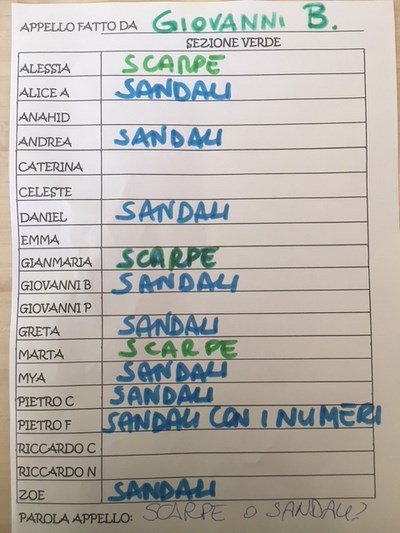 APPELLO FATTO DA GIOVANNI B.
SEZIONE VERDE
ALESSIA SCARPE
ALICE A SANDALI
ANAHID
ANDREA SANDALI
CATERINA
CELESTE
DANIEL SANDALI
EMMA
GIANMARIA SCARPE
GIOVANNI B SANDALI
GIOVANNI P
GRETA SANDALI
MARTA SCARPE
MYA SANDALI
PIETRO C SANDALI
PIETRO F SANDALI CON I NUMERI
RICCARDO C
RICCARDO N
ZOE SANDALI
PAROLA APPELLO: SCARPE O SANDALI?